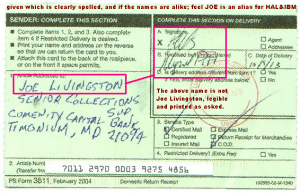 given which is clearly spelled, and if the names are alike; feel JOE is an alias for HAL&IBM
SENDER: COMPLETE THIS SECTION
COMPLETE THIS SECTION ON DELIVERY
Complete items 1, 2, and 3. Also complete
item 4 if Restricted Delivery is desired.
Print your name and address on the reverse
so that we can return the card to you.
Attach this card to the back of the mailpiece,
or on the front if space permits.
A. Signature
X
Agent
Addressee
C. Date of Delivery
1. Article Addressed to:
JOE LIVINGSTON
SENIOR COLLECTIONS
COMENITY CAPITAL BANK
TIMONIUM, MD 21094
D. Is delivery address different from item 1? Yes
The above name is not
Joe Livingston, legible
and printed as asked.
3. Service Type
Certified Mail
Express Mail
Registered
Return Receipt for Merchandise
Insured Mail
C.O.D.
4. Restricted Delivery? (Extra Fee)
Yes
2. Article Number
7011 2970 0003 9275 4856
PS Form 3811, February 2004
Domestic Return Receipt
102595-02-M-1540